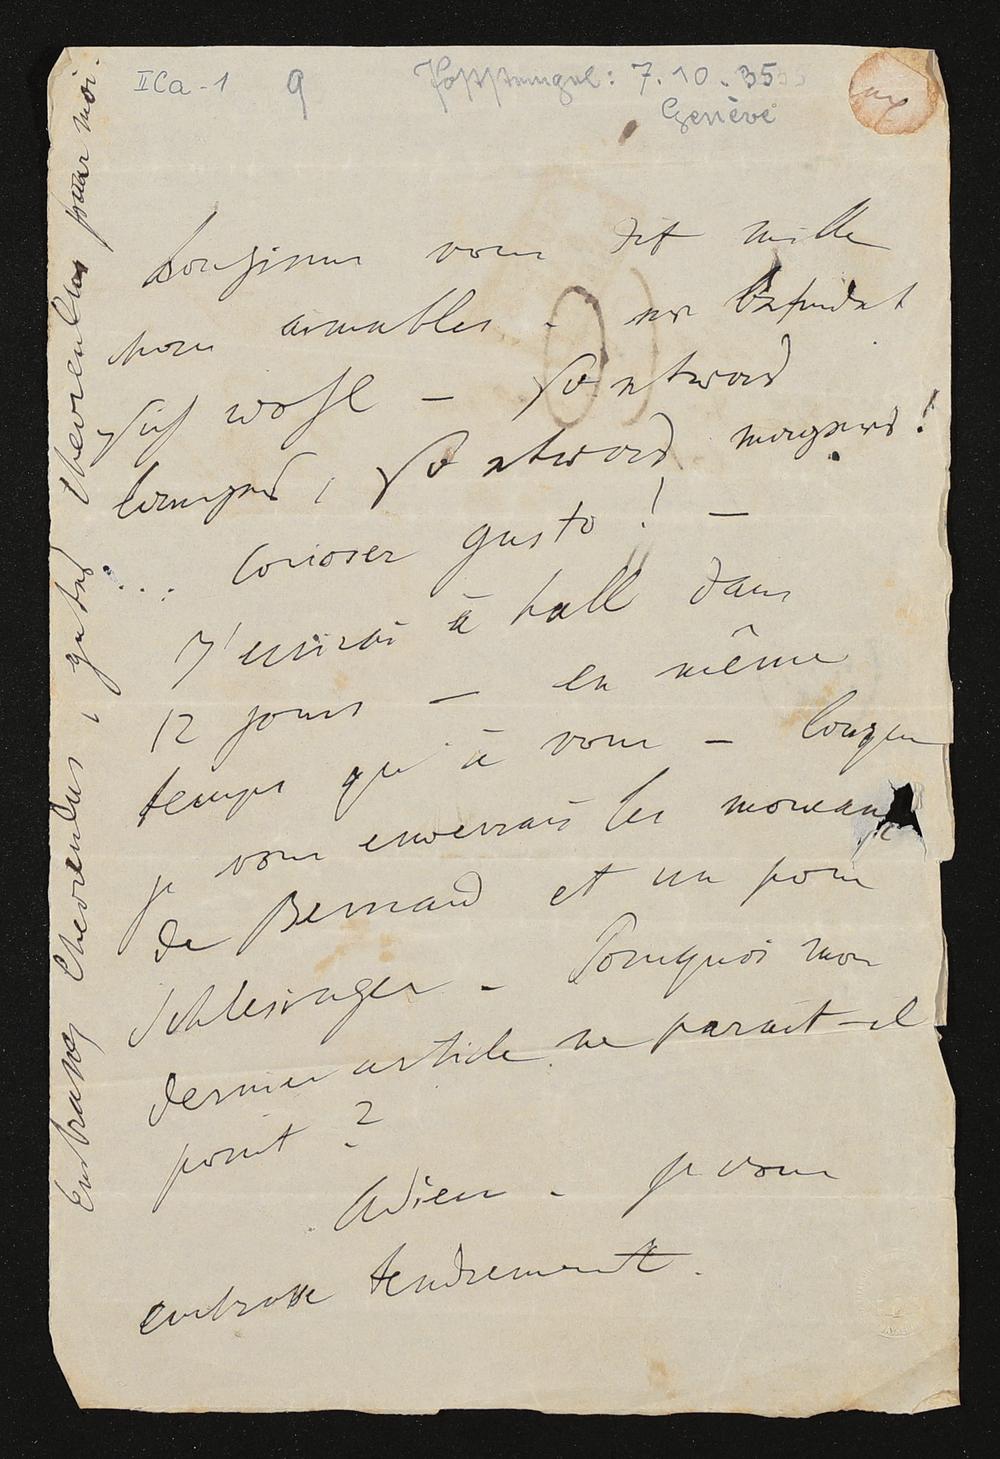 IICa-1 9 Poststempel: 7.10.35
Genève
Longinus vous dit mille
choses aimables. er befindet
sich wohl – So etwas
langes, So etwas mageres!
... Curioser gusto! –
J'écrirai à hall dans
12 jours – en même
temps qu'à vous – lorsque
je vous enverrais les morceaux
de Bernard et un pour
Schlesinger – Pourquoi mon
dernier article ne parait-il
point?
Adieu – je vous
embrasse tendrement.
Embrassez Chevreulus, gutes Chevreulus pour moi.